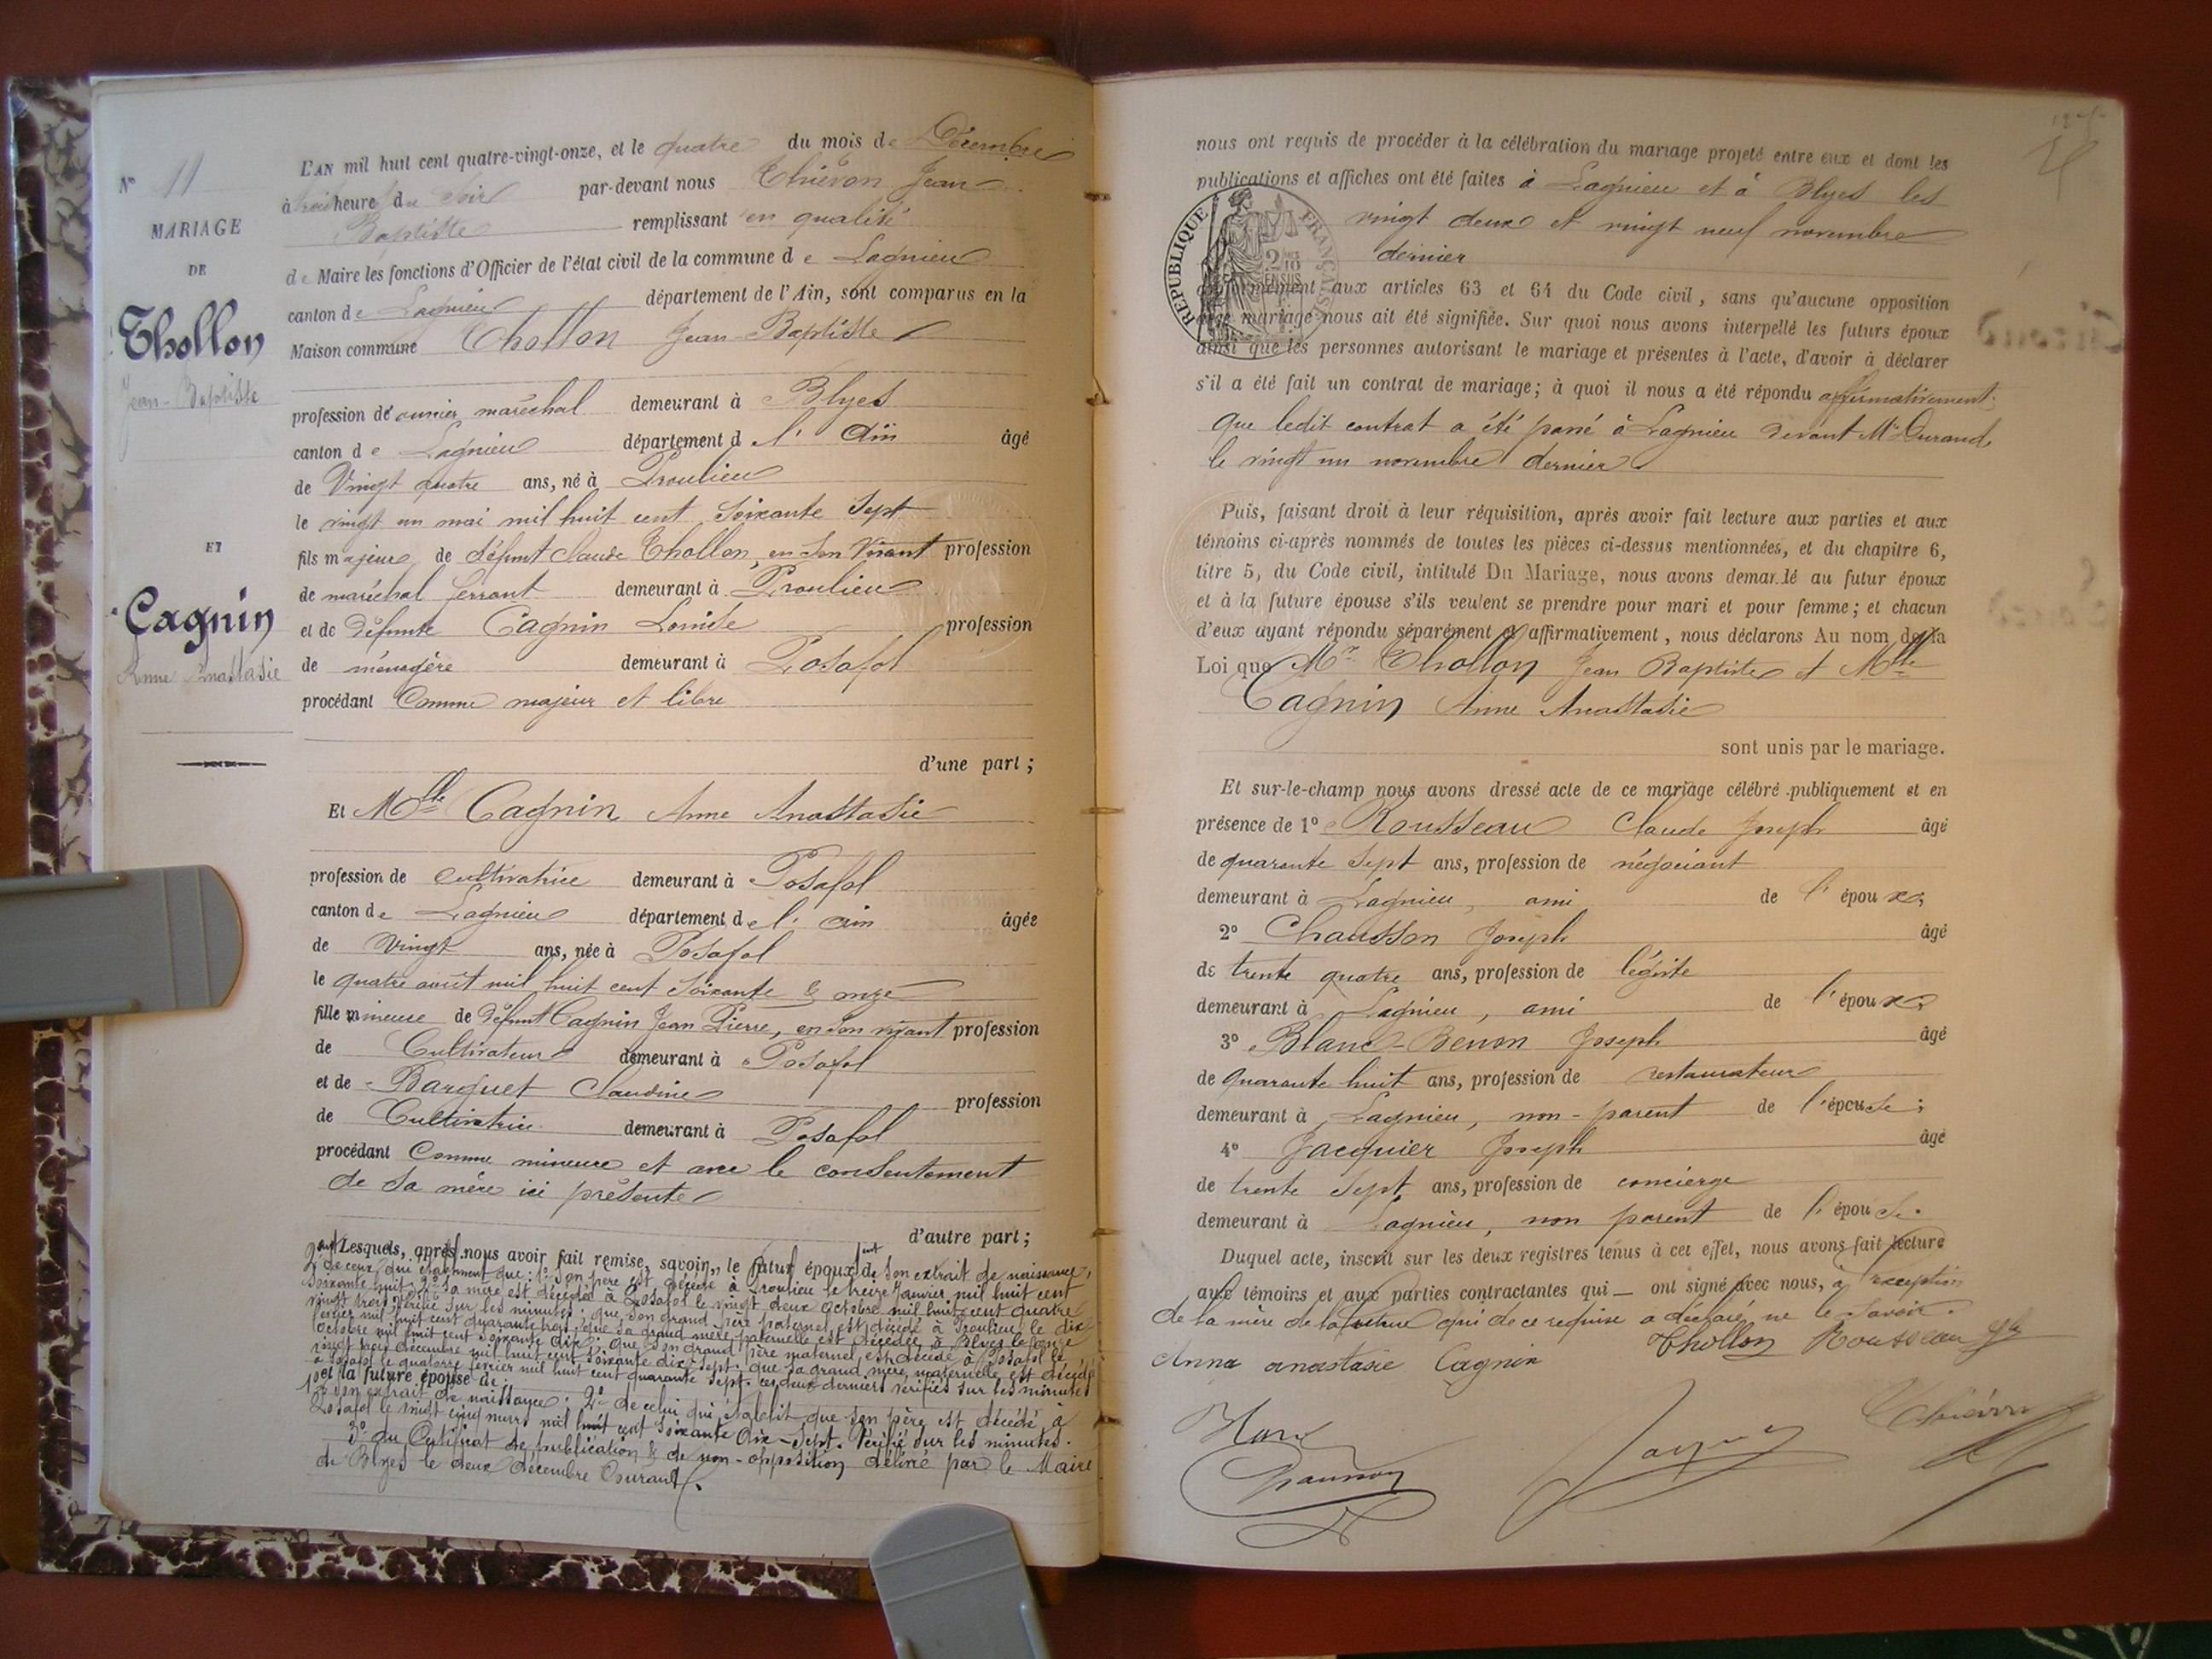 N° 11
MARIAGE
DE
Thollon
Jean-Baptiste
ET
Cagnin
Anne Anastasie
L'AN mil huit cent quatre-vingt-onze, et le quatre du mois de Décembre
à trois heure du soir par-devant nous Thiévon Jean
Baptiste remplissant en qualité
de Maire les fonctions d'Officier de l'état civil de la commune de Lagnieu
canton de Lagnieu département de l'Ain, sont comparus en la
Maison commune Thollon Jean-Baptiste
profession d'ouvrier maréchal demeurant à Blyes
canton de Lagnieu département de l'Ain âgé
de Vingt quatre ans, né à Proulieu
le vingt un mai mil huit cent soixante sept
fils majeur de défunt Claude Thollon, en son vivant profession
de maréchal ferrant demeurant à Proulieu
et de défunte Cagnin Louise profession
de ménagère demeurant à Posafol
procédant Comme majeur et libre
d'une part ;
Et Mlle Cagnin Anne Anastasie
profession de cultivatrice demeurant à Posafol
canton de Lagnieu département de l'ain âgée
de Vingt ans, née à Posafol
le quatre août mil huit cent soixante & onze
fille mineure de défunt Cagnin Jean Pierre, en son vivant profession
de Cultivateur demeurant à Posafol
et de Barquet Claudine profession
de Cultivatrice demeurant à Posafol
procédant Comme mineure et avec le consentement
de sa mère ici présente
d'autre part ;
Lesquels, après nous avoir fait remise, savoir, le futur époux de 1ent Son extrait de naissance,
2ent de ceux qui établissent que : 1° Son père est décédé à Proulieu le treize Janvier mil huit cent
soixante huit 2° Sa mère est décédée à Posafol le vingt deux octobre mil huit cent quatre
vingt trois vérifié sur les minutes ; que son grand père paternel est décédé à Proulieu le dix
février mil huit cent quarante trois, que sa grand mère paternelle est décédée à Blyes le onze
octobre mil huit cent soixante dix ; que son grand père maternel est décédé à Posafol le
vingt trois décembre mil huit cent soixante dix-sept. que sa grand mère maternelle est décédée
à Posafol le quatorze février mil huit cent quarante sept. ces deux derniers vérifiés sur les minutes
et la future épouse de :
1° Son extrait de naissance ; 2° de celui qui établit que son père est décédé à
Posafol le vingt cinq mars mil huit cent soixante Dix-Sept. Vérifié sur les minutes.
3° du Certificat de publication & de non-opposition délivré par le Maire
de Blyes le deux décembre Courant.
nous ont requis de procéder à la célébration du mariage projeté entre eux et dont les
publications et affiches ont été faites à Lagnieu et à Blyes les
vingt deux et vingt neuf novembre
dernier
RÉPUBLIQUE FRANÇAISE
conformément aux articles 63 et 64 du Code civil, sans qu'aucune opposition
à ce mariage nous ait été signifiée. Sur quoi nous avons interpellé les futurs époux
ainsi que les personnes autorisant le mariage et présentes à l'acte, d'avoir à déclarer
s'il a été fait un contrat de mariage ; à quoi il nous a été répondu affirmativement.
que ledit contrat a été passé à Lagnieu devant Me Durand,
le vingt un novembre dernier
Puis, faisant droit à leur réquisition, après avoir fait lecture aux parties et aux
témoins ci-après nommés de toutes les pièces ci-dessus mentionnées, et du chapitre 6,
titre 5, du Code civil, intitulé Du Mariage, nous avons demandé au futur époux
et à la future épouse s'ils veulent se prendre pour mari et pour femme ; et chacun
d'eux ayant répondu séparément et affirmativement, nous déclarons Au nom de la
Loi que Mr Thollon Jean Baptiste et Mlle
Cagnin Anne Anastasie
sont unis par le mariage.
Et sur-le-champ nous avons dressé acte de ce mariage célébré publiquement et en
présence de 1° Rousseau Claude Joseph âgé
de quarante sept ans, profession de négociant
demeurant à Lagnieu, ami de l'époux ;
2° Chausson Joseph âgé
de trente quatre ans, profession de légiste
demeurant à Lagnieu, ami de l'époux ;
3° Blanc-Benon Joseph âgé
de quarante huit ans, profession de restaurateur
demeurant à Lagnieu, non-parent de l'épouse ;
4° Jacquier Joseph âgé
de trente sept ans, profession de concierge
demeurant à Lagnieu, non parent de l'épouse.
Duquel acte, inscrit sur les deux registres tenus à cet effet, nous avons fait lecture
aux témoins et aux parties contractantes qui ont signé avec nous, à l'exception
de la mère de la future qui de ce requise a déclaré ne le savoir.
Thollon Rousseau
Anna anastasie Cagnin
Blanc
Chausson
Thiévon